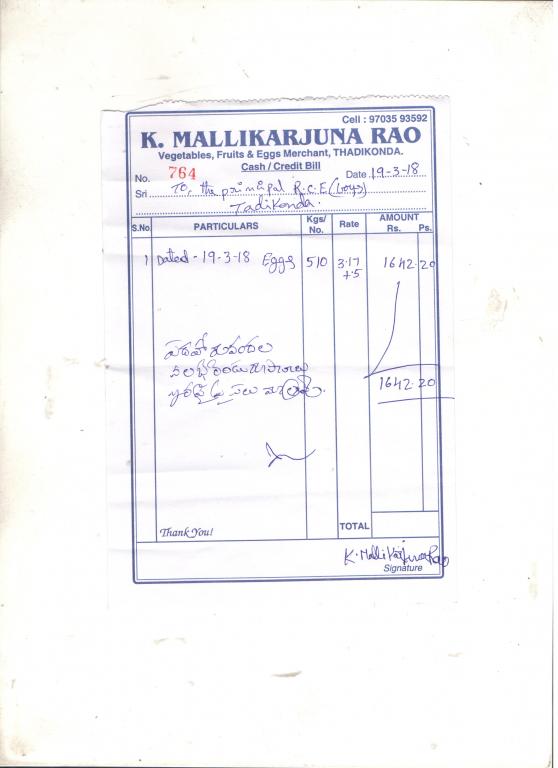 Cell : 97035 93592
K. MALLIKARJUNA RAO
Vegetables, Fruits & Eggs Merchant, THADIKONDA.
Cash / Credit Bill
No. 764 Date 19-3-18
Sri To, the principal R.C.E (boys)
Tadikonda.
S.No. PARTICULARS Kgs/No. Rate AMOUNT Rs. Ps.
1 Dated - 19-3-18 Eggs 510 3.17 1642.20
+.5
పదహారువందల
నలభైరెండు రూపాయలు
1642.20
Thank You! TOTAL
K. Mallikarjuna Rao
Signature